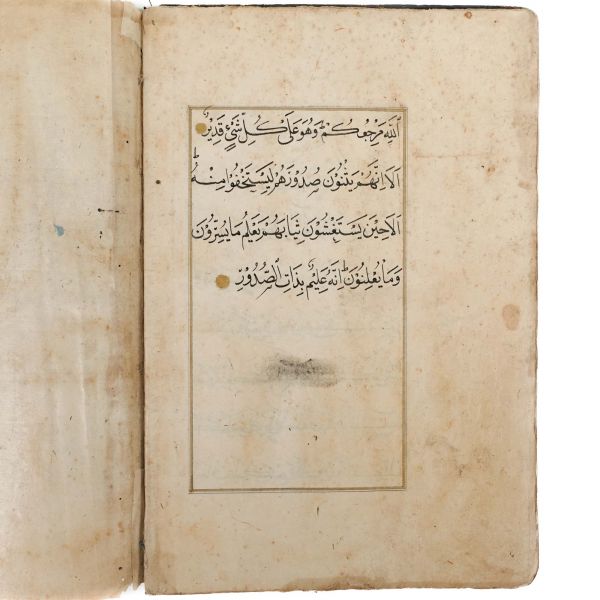 اللَّهِ مَرْجِعُكُمْ وَهُوَ عَلَىٰ كُلِّ شَيْءٍ قَدِيرٌ
اَلَا اِنَّهُمْ يَثْنُونَ صُدُورَهُمْ لِيَسْتَخْفُوا مِنْهُ ط
اَلَا حِينَ يَسْتَغْشُونَ ثِيَابَهُمْ يَعْلَمُ مَا يُسِرُّونَ
وَمَا يُعْلِنُونَ ط اِنَّهُ عَلِيمٌ بِذَاتِ الصُّدُورِ